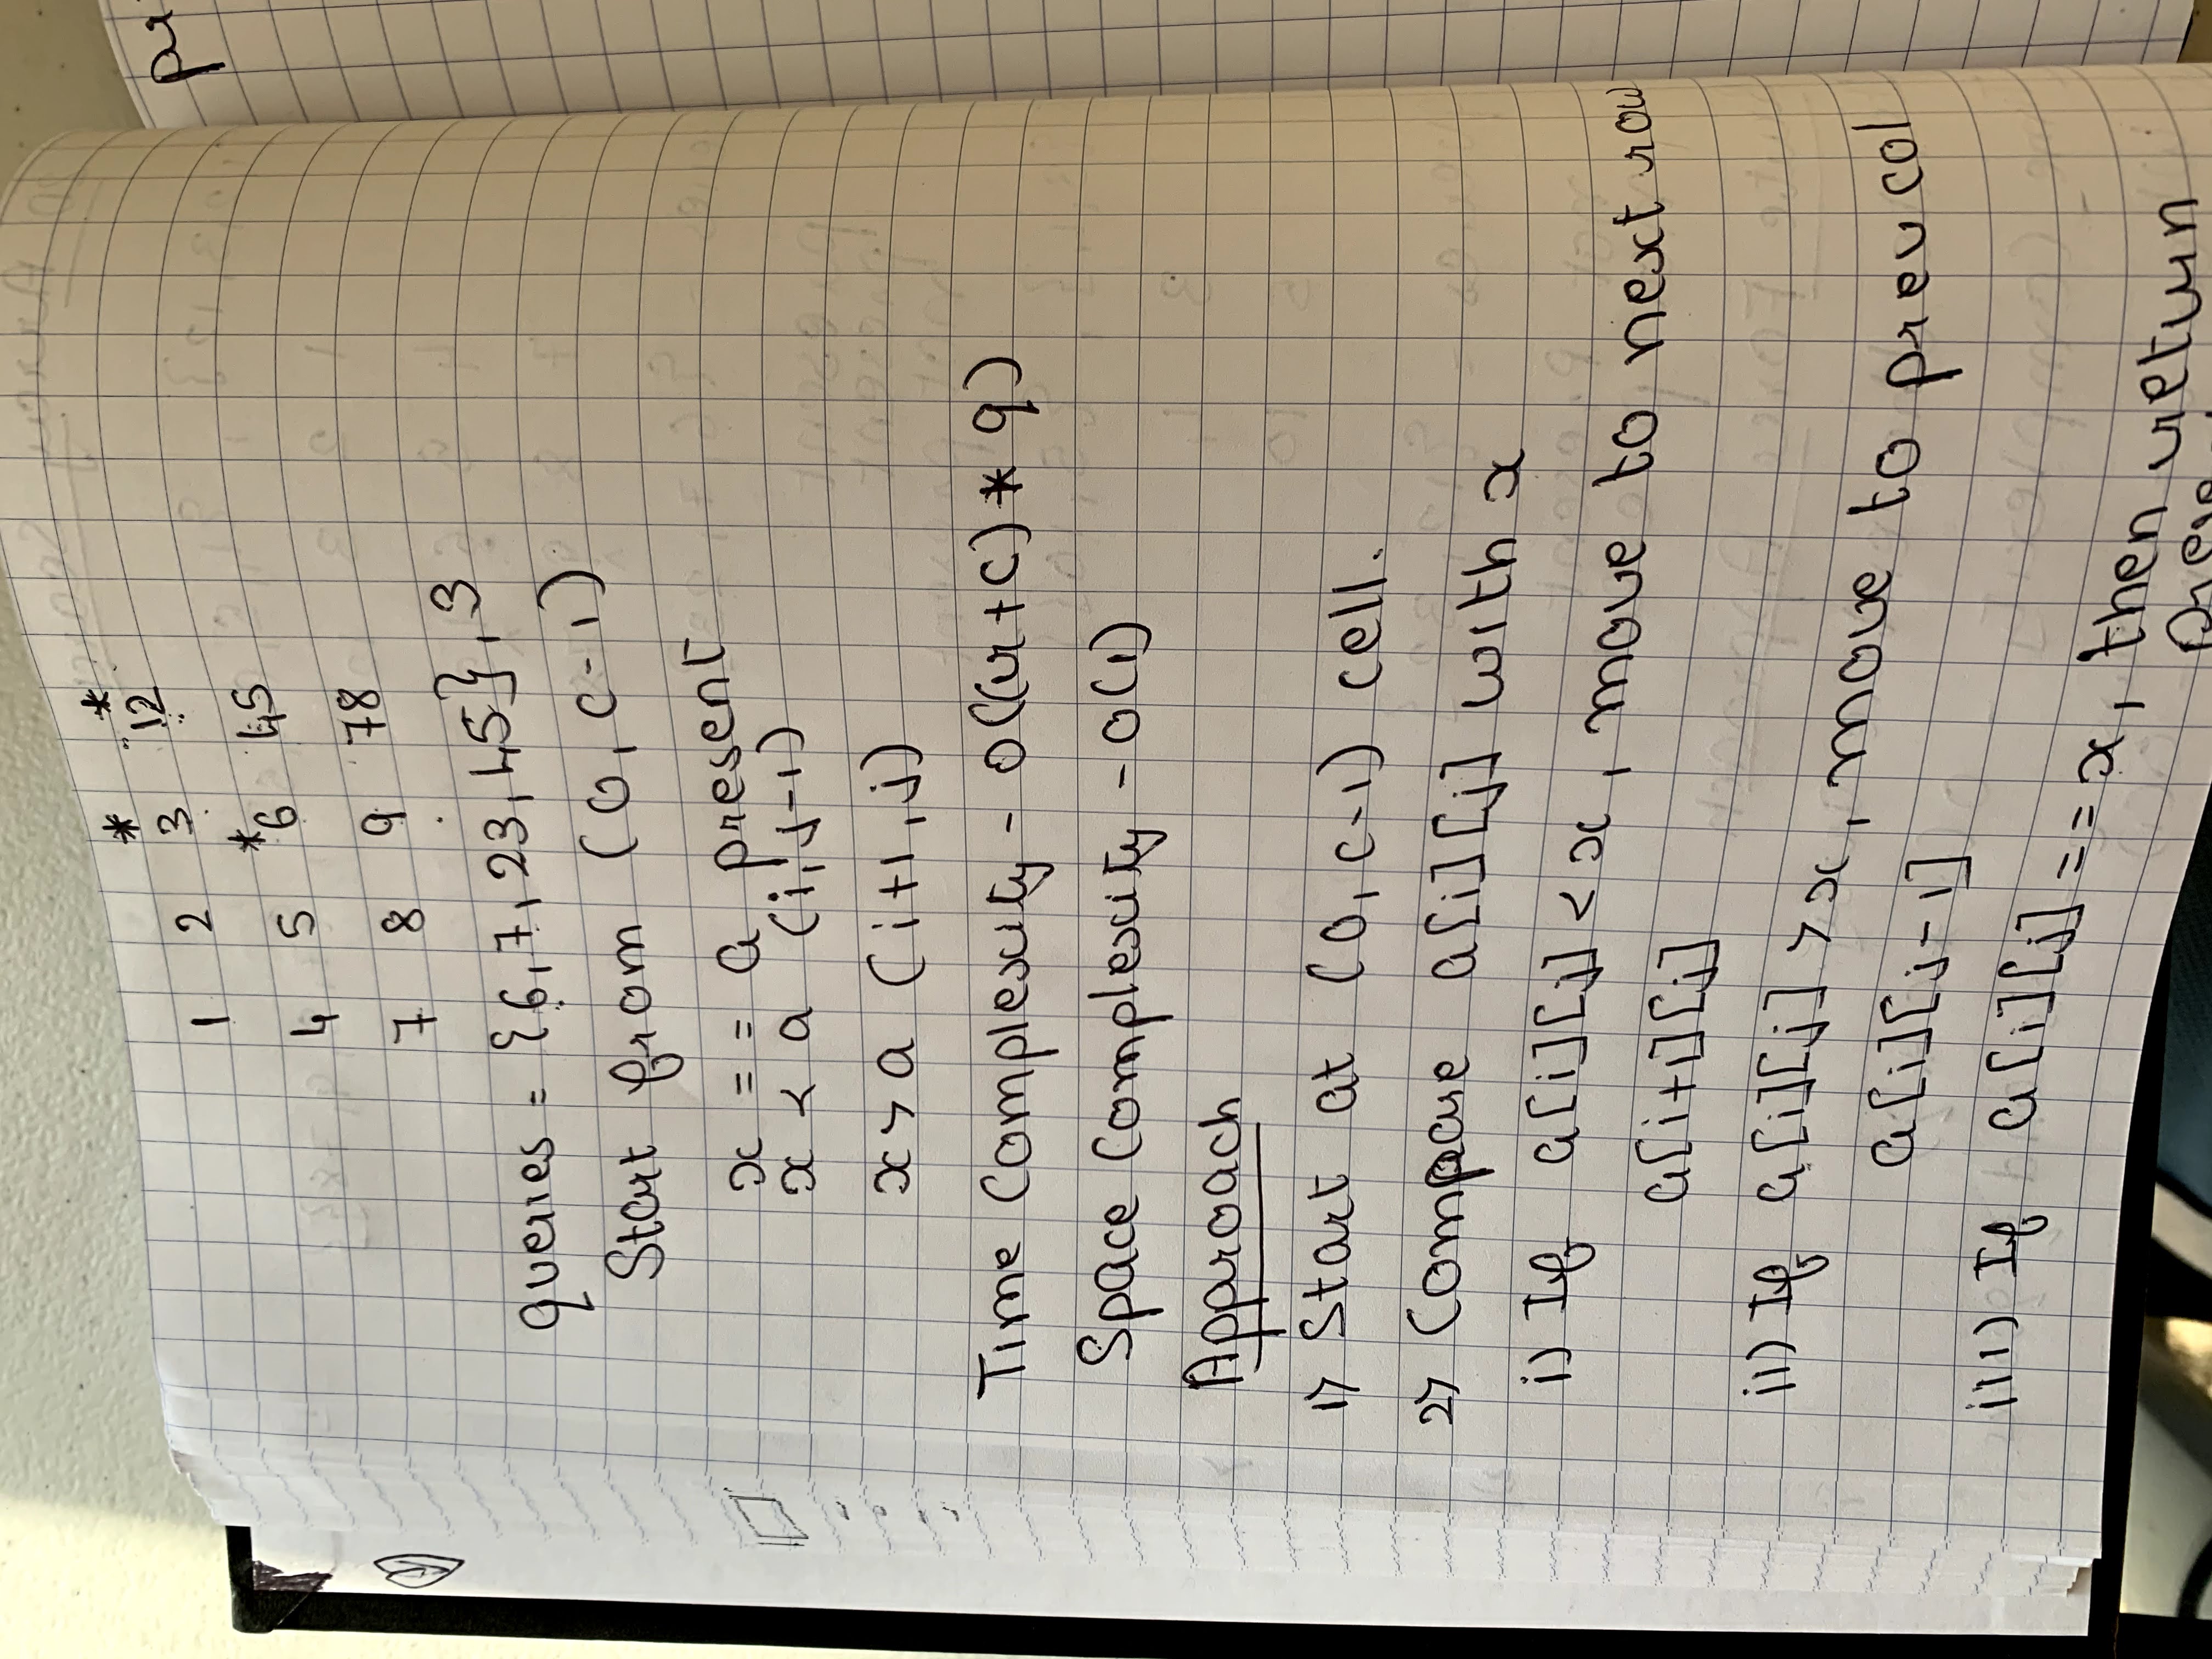 * *
1 2 3 12
*
4 5 6 45
7 8 9 78
queries = {6, 7, 23, 45}, 3
Start from (0, c-1)
x == a present
x < a (i, j-1)
x > a (i+1, j)
Time Complexity - O((r+c) * q)
Space Complexity - O(1)
Approach
1) Start at (0, c-1) cell.
2) Compare a[i][j] with x
i) If a[i][j] < x, move to next row
a[i+1][j]
ii) If a[i][j] > x, move to prev col
a[i][j-1]
iii) If a[i][j] == x, then return